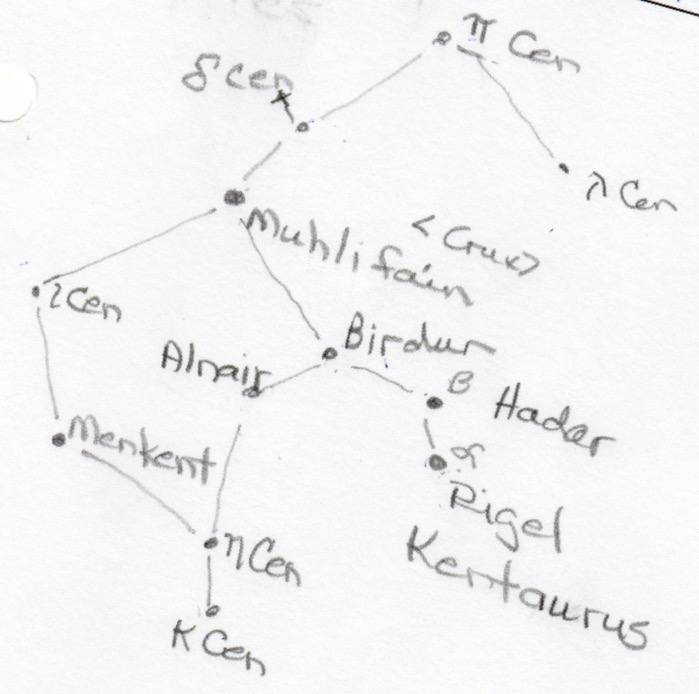 π Cen
δ Cen
λ Cen
Muhlifain
<Crux>
ι Cen
Birdun
Alnair
β Hadar
Menkent
α
Rigel
Kentaurus
η Cen
κ Cen